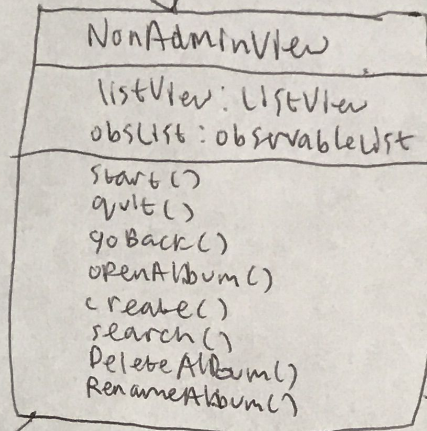 NonAdminView
listView: ListView
obsList: observableList
start()
quit()
goBack()
openAlbum()
create()
search()
DeleteAlbum()
RenameAlbum()